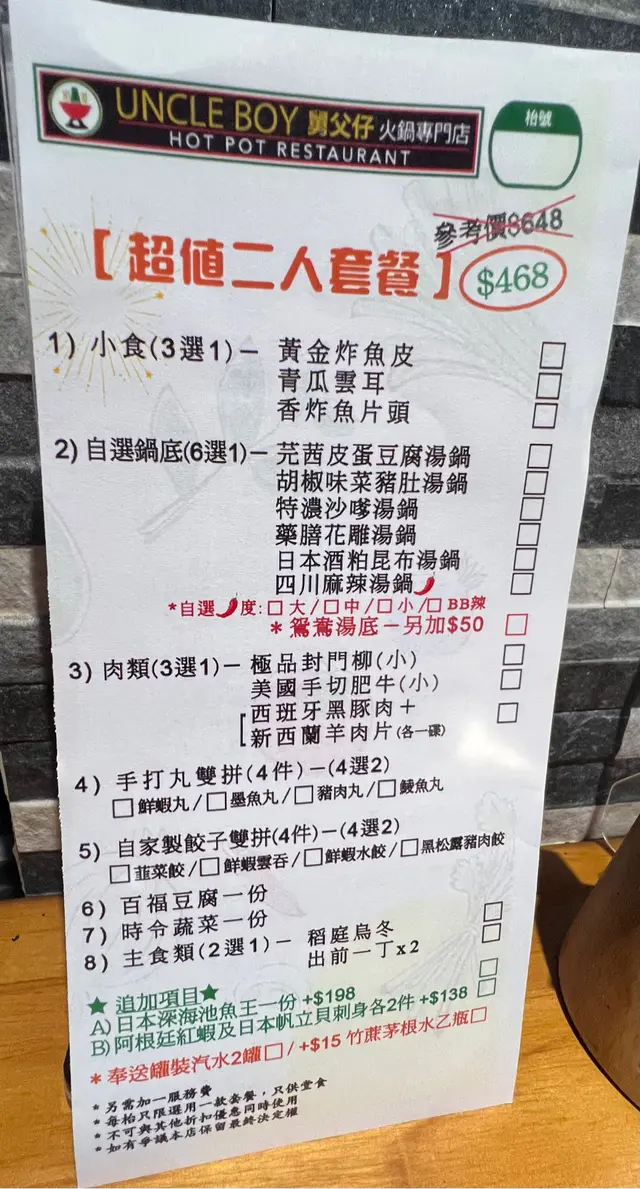 UNCLE BOY 舅父仔 火鍋專門店
HOT POT RESTAURANT
枱號
參考價$648
【超值二人套餐】 $468
1) 小食(3選1)－ 黃金炸魚皮 □
青瓜雲耳 □
香炸魚片頭 □
2) 自選鍋底(6選1)－ 芫茜皮蛋豆腐湯鍋 □
胡椒味菜豬肚湯鍋 □
特濃沙嗲湯鍋 □
藥膳花雕湯鍋 □
日本酒粕昆布湯鍋 □
四川麻辣湯鍋 □
*自選🌶度: □大/□中/□小/□BB辣
*鴛鴦湯底－另加$50 □
3) 肉類(3選1)－ 極品封門柳(小) □
美國手切肥牛(小) □
西班牙黑豚肉＋ □
新西蘭羊肉片(各一碟)
4) 手打丸雙拼(4件)－(4選2)
□鮮蝦丸/□墨魚丸/□豬肉丸/□鯪魚丸
5) 自家製餃子雙拼(4件)－(4選2)
□韮菜餃/□鮮蝦雲吞/□鮮蝦水餃/□黑松露豬肉餃
6) 百福豆腐一份
7) 時令蔬菜一份
8) 主食類(2選1)－ 稻庭烏冬 □
出前一丁x2 □
★ 追加項目★
A)日本深海池魚王一份 +$198 □
B)阿根廷紅蝦及日本帆立貝刺身各2件 +$138 □
*奉送罐裝汽水2罐□/+$15 竹蔗茅根水乙瓶□
*另需加一服務費
*每枱只限選用一款套餐，只供堂食
*不可與其他折扣優惠同時使用
*如有爭議本店保留最終決定權